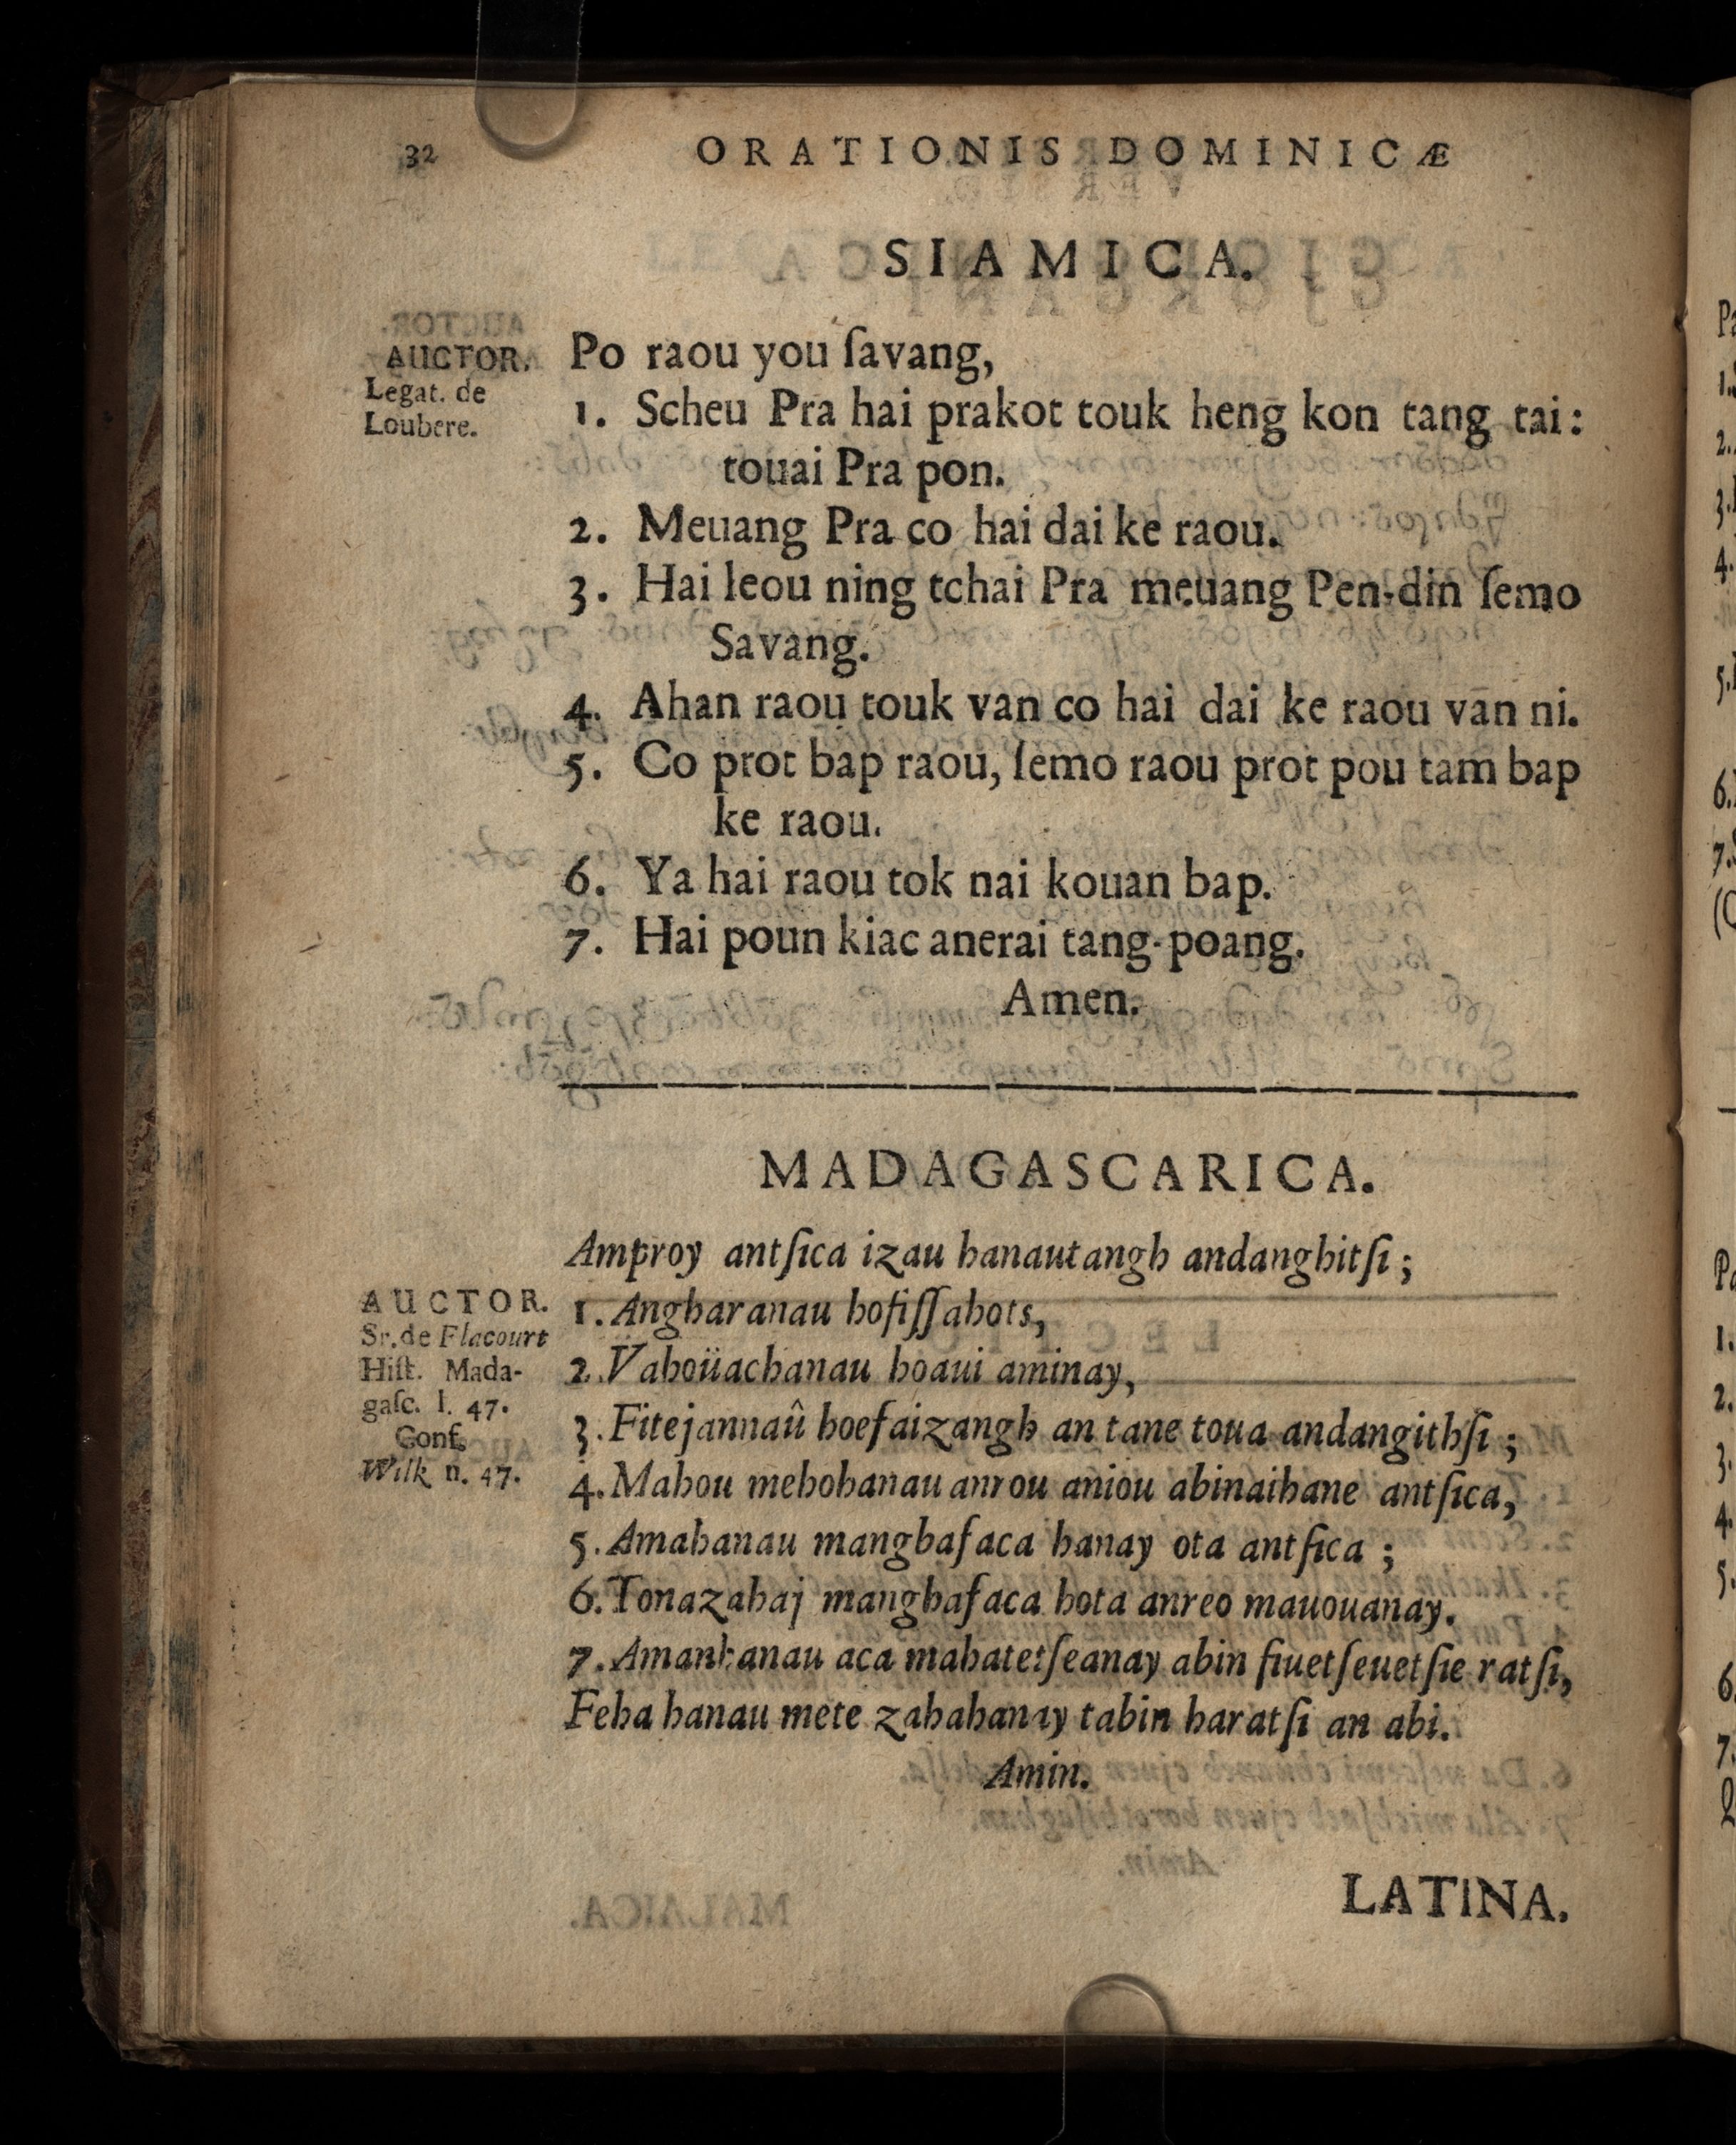 32
ORATIONIS DOMINICÆ
SIAMICA.
AUCTOR.
Legat. de
Loubere.
Po raou you ſavang,
1. Scheu Pra hai prakot touk heng kon tang tai:
touai Pra pon.
2. Meuang Pra co hai dai ke raou.
3. Hai leou ning tchai Pra meuang Pen-din ſemo
Savang.
4. Ahan raou touk van co hai dai ke raou van ni.
5. Co prot bap raou, ſemo raou prot pou tam bap
ke raou.
6. Ya hai raou tok nai kouan bap.
7. Hai poun kiac anerai tang-poang.
Amen.
MADAGASCARICA.
AUCTOR.
Sr. de Flacourt
Hiſt. Mada-
gaſc. l. 47.
Conf.
Wilk n. 47.
Amproy antſica izau hanautangh andanghitſi;
1. Angharanau hofiſſahots,
2. Vahoüachanau hoaui aminay,
3. Fitejannaû hoefaizangh an tane toua andangithſi;
4. Mahou mehohanau anrou aniou abinaihane antſica,
5. Amahanau manghafaca hanay ota antſica;
6. Tonazahaj manghafaca hota anreo mauouanay.
7. Amanhanau aca mahatetſeanay abin fiuetſeuetſie ratſi,
Feha hanau mete zahahanay tabin haratſi an abi.
Amin.
LATINA.